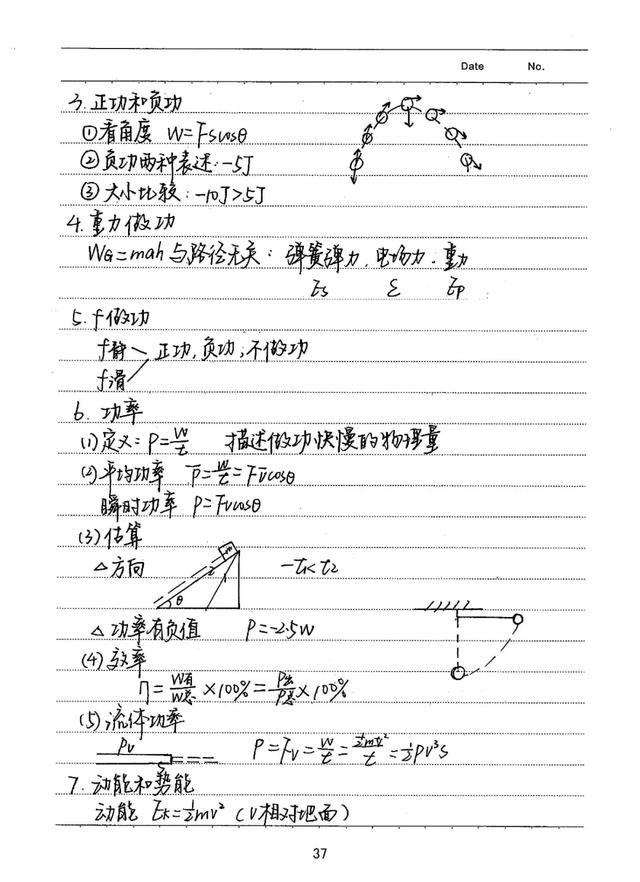 Date No.
3. 正功和负功
①看角度 W=Fscosθ
②负功两种表述:-5J
③大小比较:-10J>5J
4. 重力做功
WG=mgh与路径无关: 弹簧弹力、电场力、重力
Es ε Ep
5. f做功
f静 正功,负功,不做功
f滑
6. 功率
(1)定义:P=W/t 描述做功快慢的物理量
(2)平均功率 P̄=W/t=Fv̄cosθ
瞬时功率 P=Fvcosθ
(3)估算
△方向 -t1<t2
2 1
θ
△功率有负值 P=-2.5W
(4)效率
η=W有/W总×100%=P出/P总×100%
(5)流体功率
ρv P=Fv=W/t=½mv²/t=½ρv³s
s
7. 动能和势能
动能 Ek=½mv²(v相对地面)
37